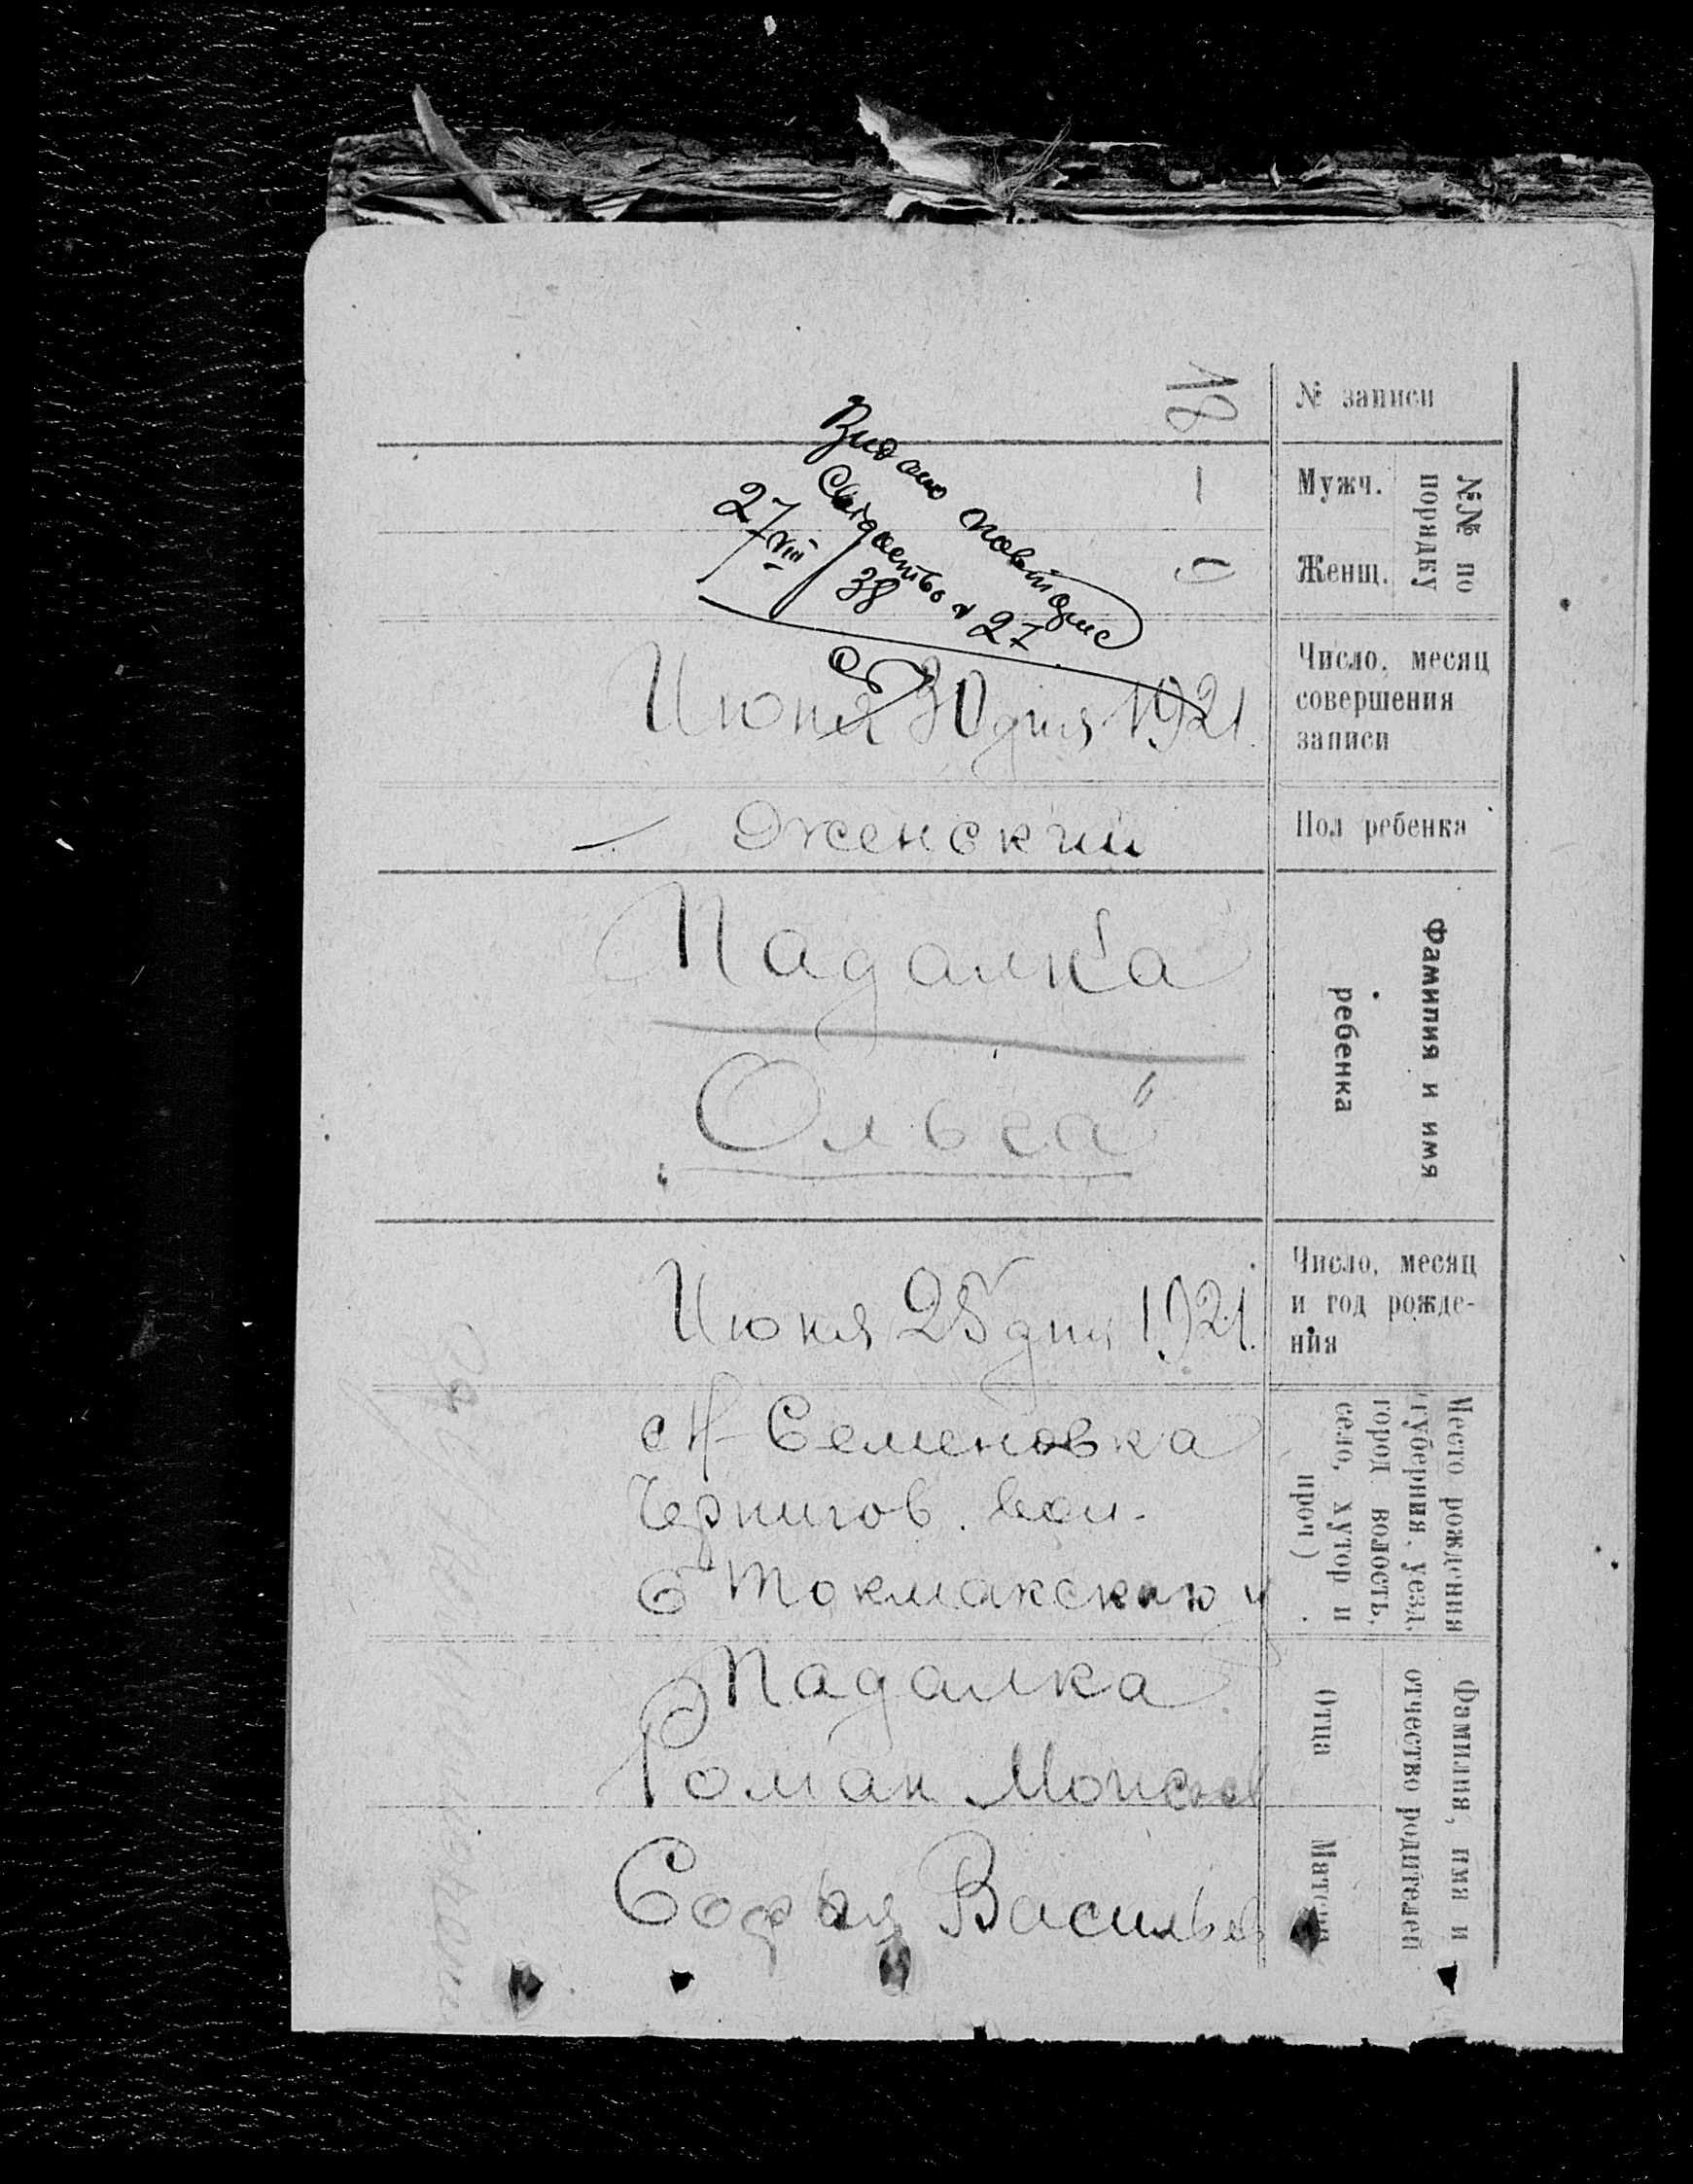 № записи
18
№№ по
порядку
Мужч.
—
Женщ.
9
Видано повторне
Свідоцтво № 27
27/VIII 38
Число, месяц
совершения
записи
Июня 30 дня 1921.
Пол ребенка
Женский
Фамилия и имя
ребенка
Падалка
„Ольга“
Число, месяц
и год рожде-
ния
Июня 25 дня 1921.
Место рождения
(губерния, уезд,
город волость,
село, хутор и
проч)
с Н-Семеновка
Чернигов. вол.
Б Токмакского у
Фамилия, имя и
отчество родителей
Отца
Падалка
Роман Моисеев
Матери
Софья Васильев